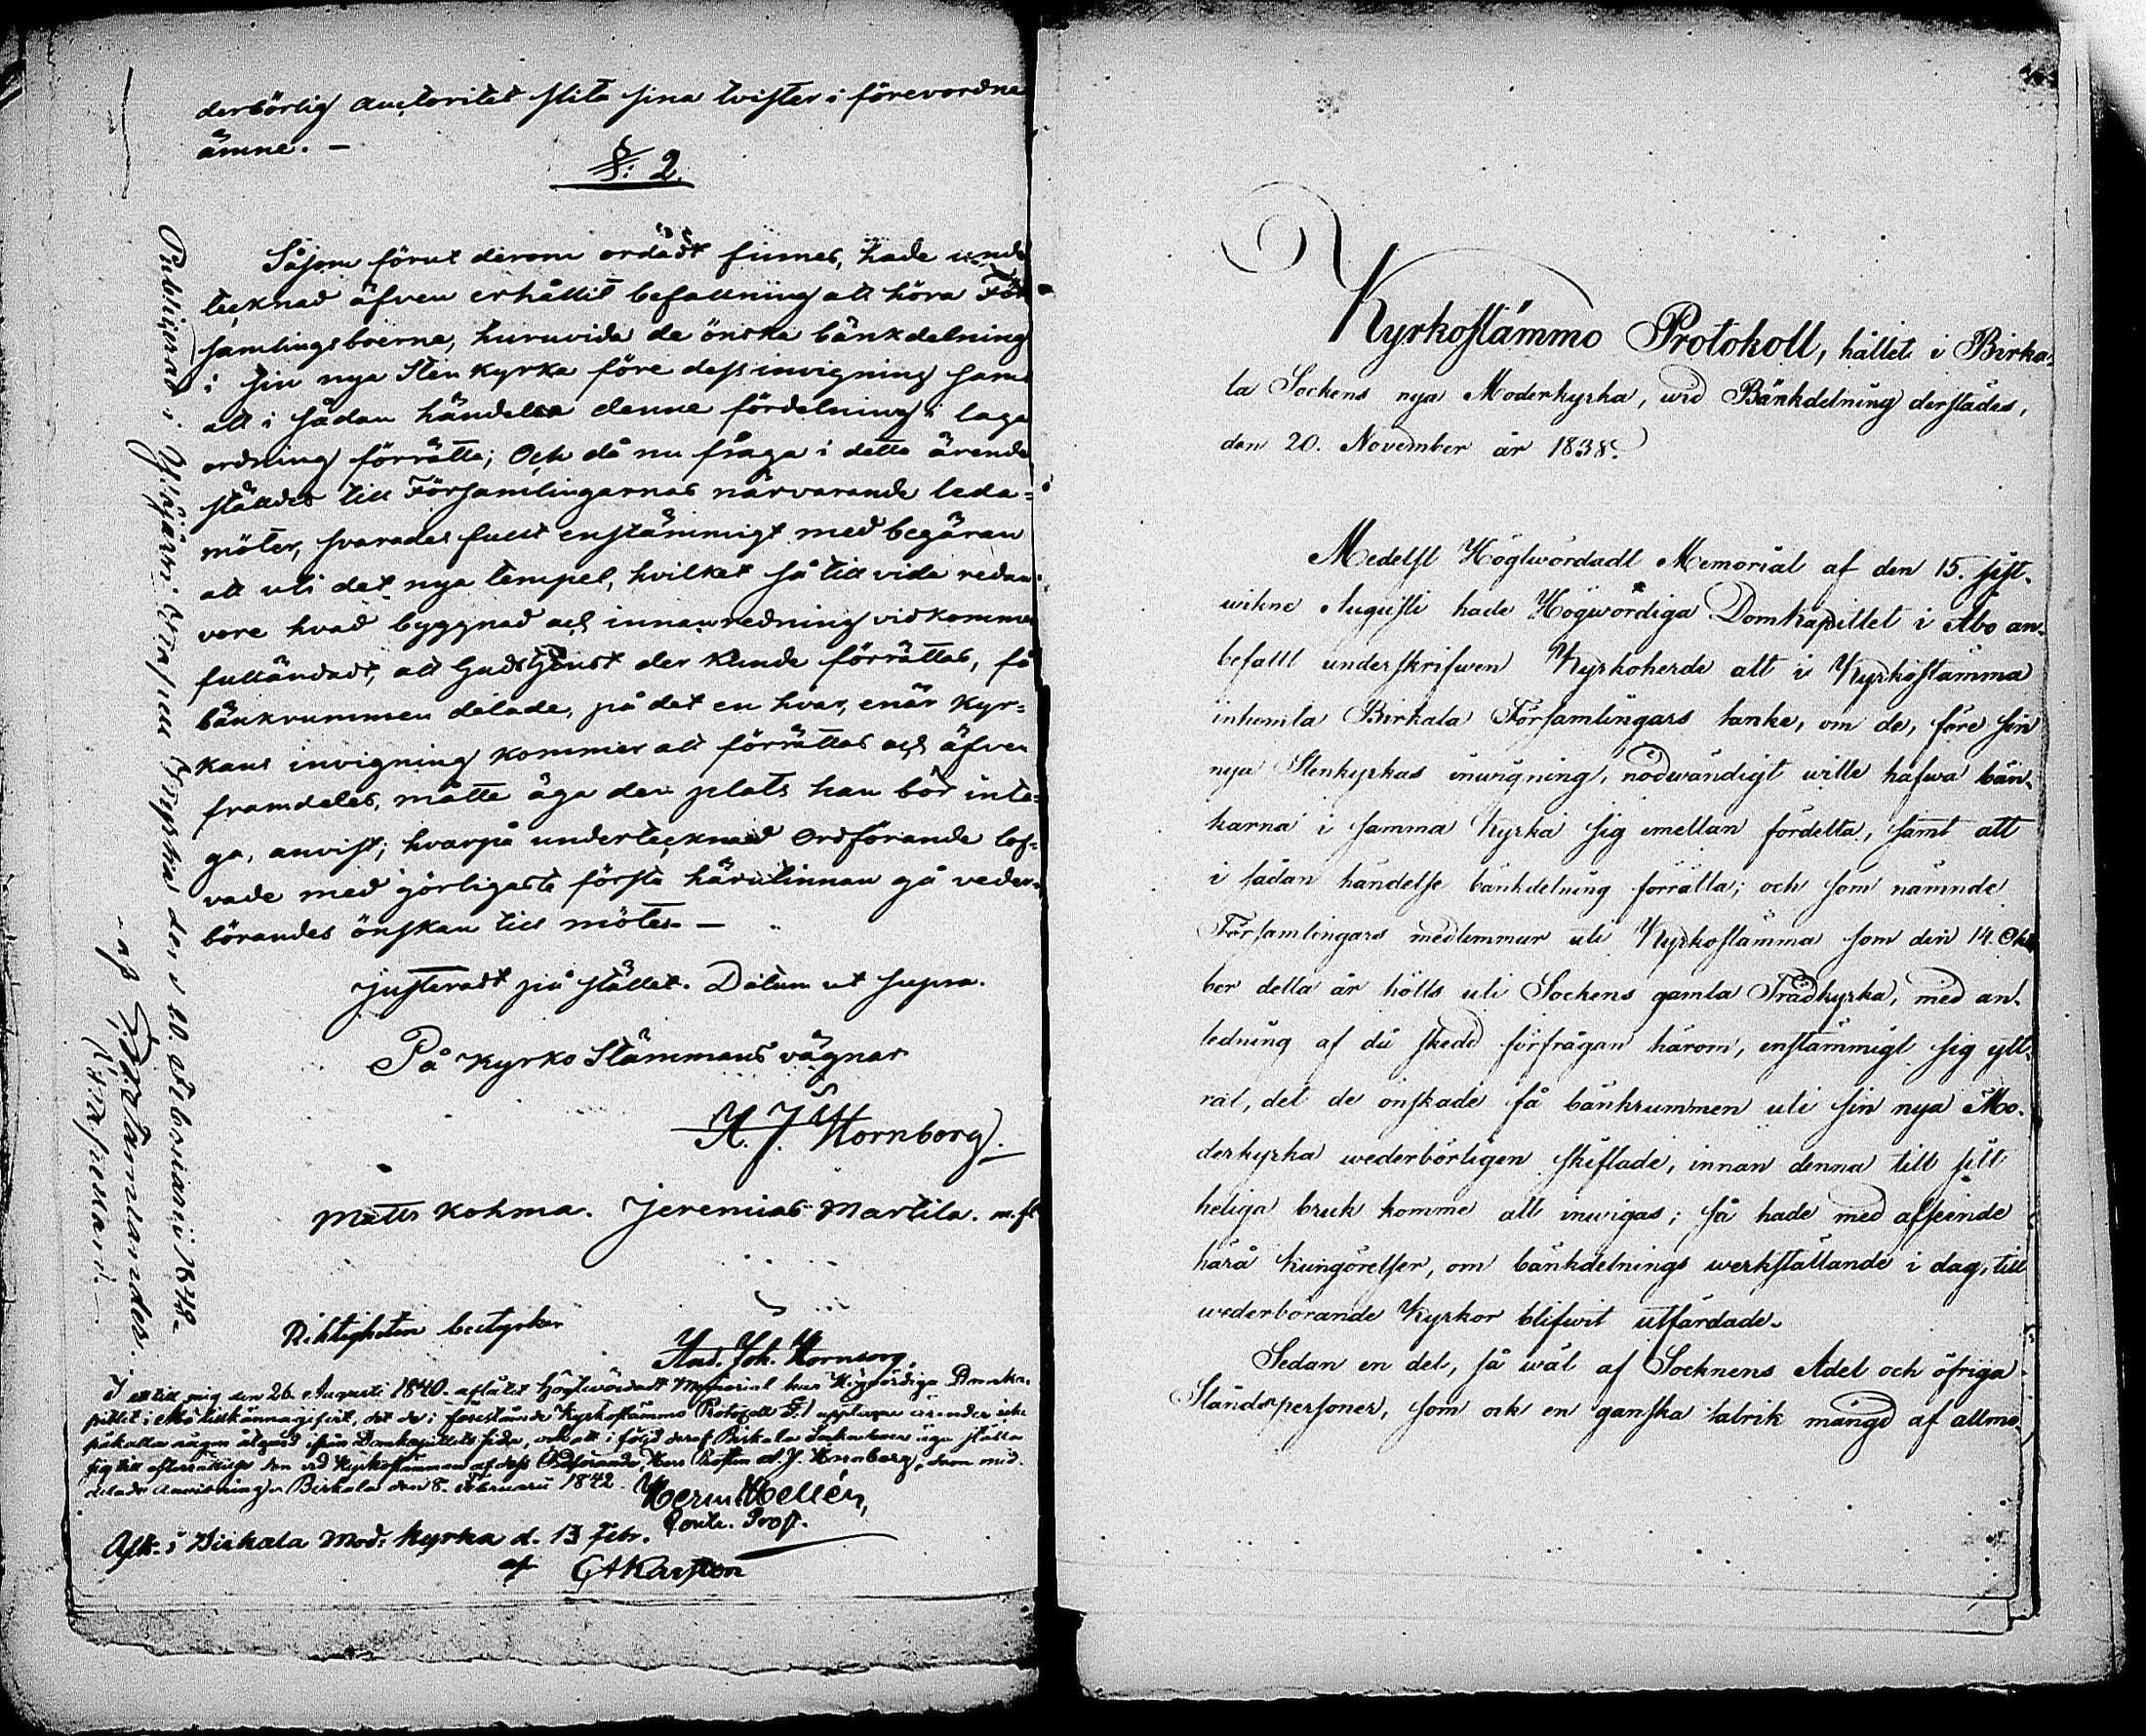 derbörlig auctoritet slita sina tvister i förevordne
ämne. —
§: 2.
Såsom förut derom ordadt finnes, hade unde
tecknad äfven erhållit befallning att höra För
samlingsboerne, huruvida de önska bänkdelning
i sin nya Stenkyrka före dess invigning samt
att i sådan händelse denne fördelning i laga
ordning förrätta; Och då nu fråga i detta ärende
ställdes till Församlingarnas närvarande leda=
möter, svarades fullt enstämmigt med begäran
att uti det nya tempel, hvilket så till vida redan
vore hvad byggnad och innanredning vidkommer
fulländadt, att Gudstjenst der kunde förrättas, få
bänkrummen delade, på det en hvar, enär Kyr=
kans invigning kommer att förrättas och äfven
framdeles, måtte äga den plats han bör inta=
ga, anvist; hvarpå undertecknad Ordförande lof=
vade med görligaste första härutinnan gå veder=
börandes önskan till mötes. —
Justeradt på stället. Datum ut supra.
På Kyrko Stämmans vägnar
A. J. Hornborg.
Matts Kohma. Jeremias Martila. m. fl
Riktigheten bestyrker
And. Joh. Hornborg.
I ett till mig den 26 Augusti 1840. aflåtet Höglwördadt Memorial har Högwördiga Domka-
pitlet i Åbo tillkännagifvit, det de i förestående Kyrkostämmo Protokoll §.1 upptagne ärenden icke
påkalla någon åtgärd ifrån Domkapitlets sida, och att i följd deraf Birkala Sockneboer äga ställa
sig till efterrättelse den vid Kyrkostämman af dess Ordförande, Herr Prosten A. J. Hornborg, dem med-
delade anvisning. Birkala den 5. Februarii 1842.
Herm Hellén,
Contr. Prost.
Afk. i Birkala Mod: Kyrka d. 13 Febr.
af
Publicerad i Ylöjärvi Kapell Kyrka den 20. Februarii 1842
af
Kyrkostämmo Protokoll, hållet i Birka-
la Sockens nya Moderkyrka, wid Bänkdelning derstädes,
den 20. November år 1838.
Medelst Höglwördadt Memorial af den 15. sist-
wikne Augusti hade Högwördiga Domkapitlet i Åbo an-
befallt underskrifwen Kyrkoherde att i Kyrkostämma
inhemta Birkala Församlingars tanke, om de, före sin
nya Stenkyrkas inwigning, nödwändigt wille hafwa bän-
karna i samma Kyrka sig emellan fördelta, samt att
i sådan händelse bänkdelning förrätta; och som nämnde
Församlingars medlemmar uti Kyrkostämma som den 14. Okto
ber detta år hölts uti Sockens gamla Trädkyrka, med an-
ledning af då skedd förfrågan härom, enstämmigt sig ytt-
rat, det de önskade få bänkrummen uti sin nya Mo-
derkyrka wederbörligen skiftade, innan denna till sitt
heliga bruk komme att inwigas; så hade med afseende
härå kungörelser, om bänkdelnings werkställande i dag, till
wederbörande Kyrkor blifwit utfärdade.
Sedan en del, så wäl af Socknens Adel och öfriga
Ståndspersoner, som ock en ganska talrik mängd af allmo